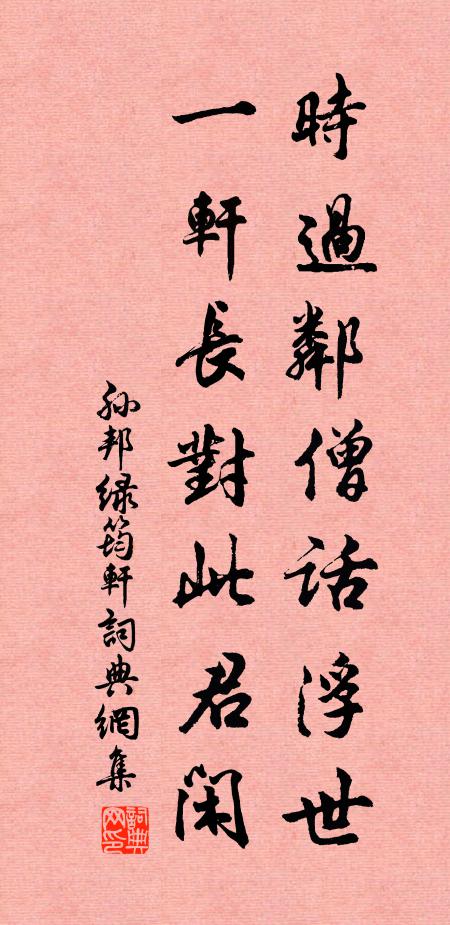 時過鄰僧話浮世
一軒長對此君閑
孫邦綠筠軒詞典網集
詞典网印